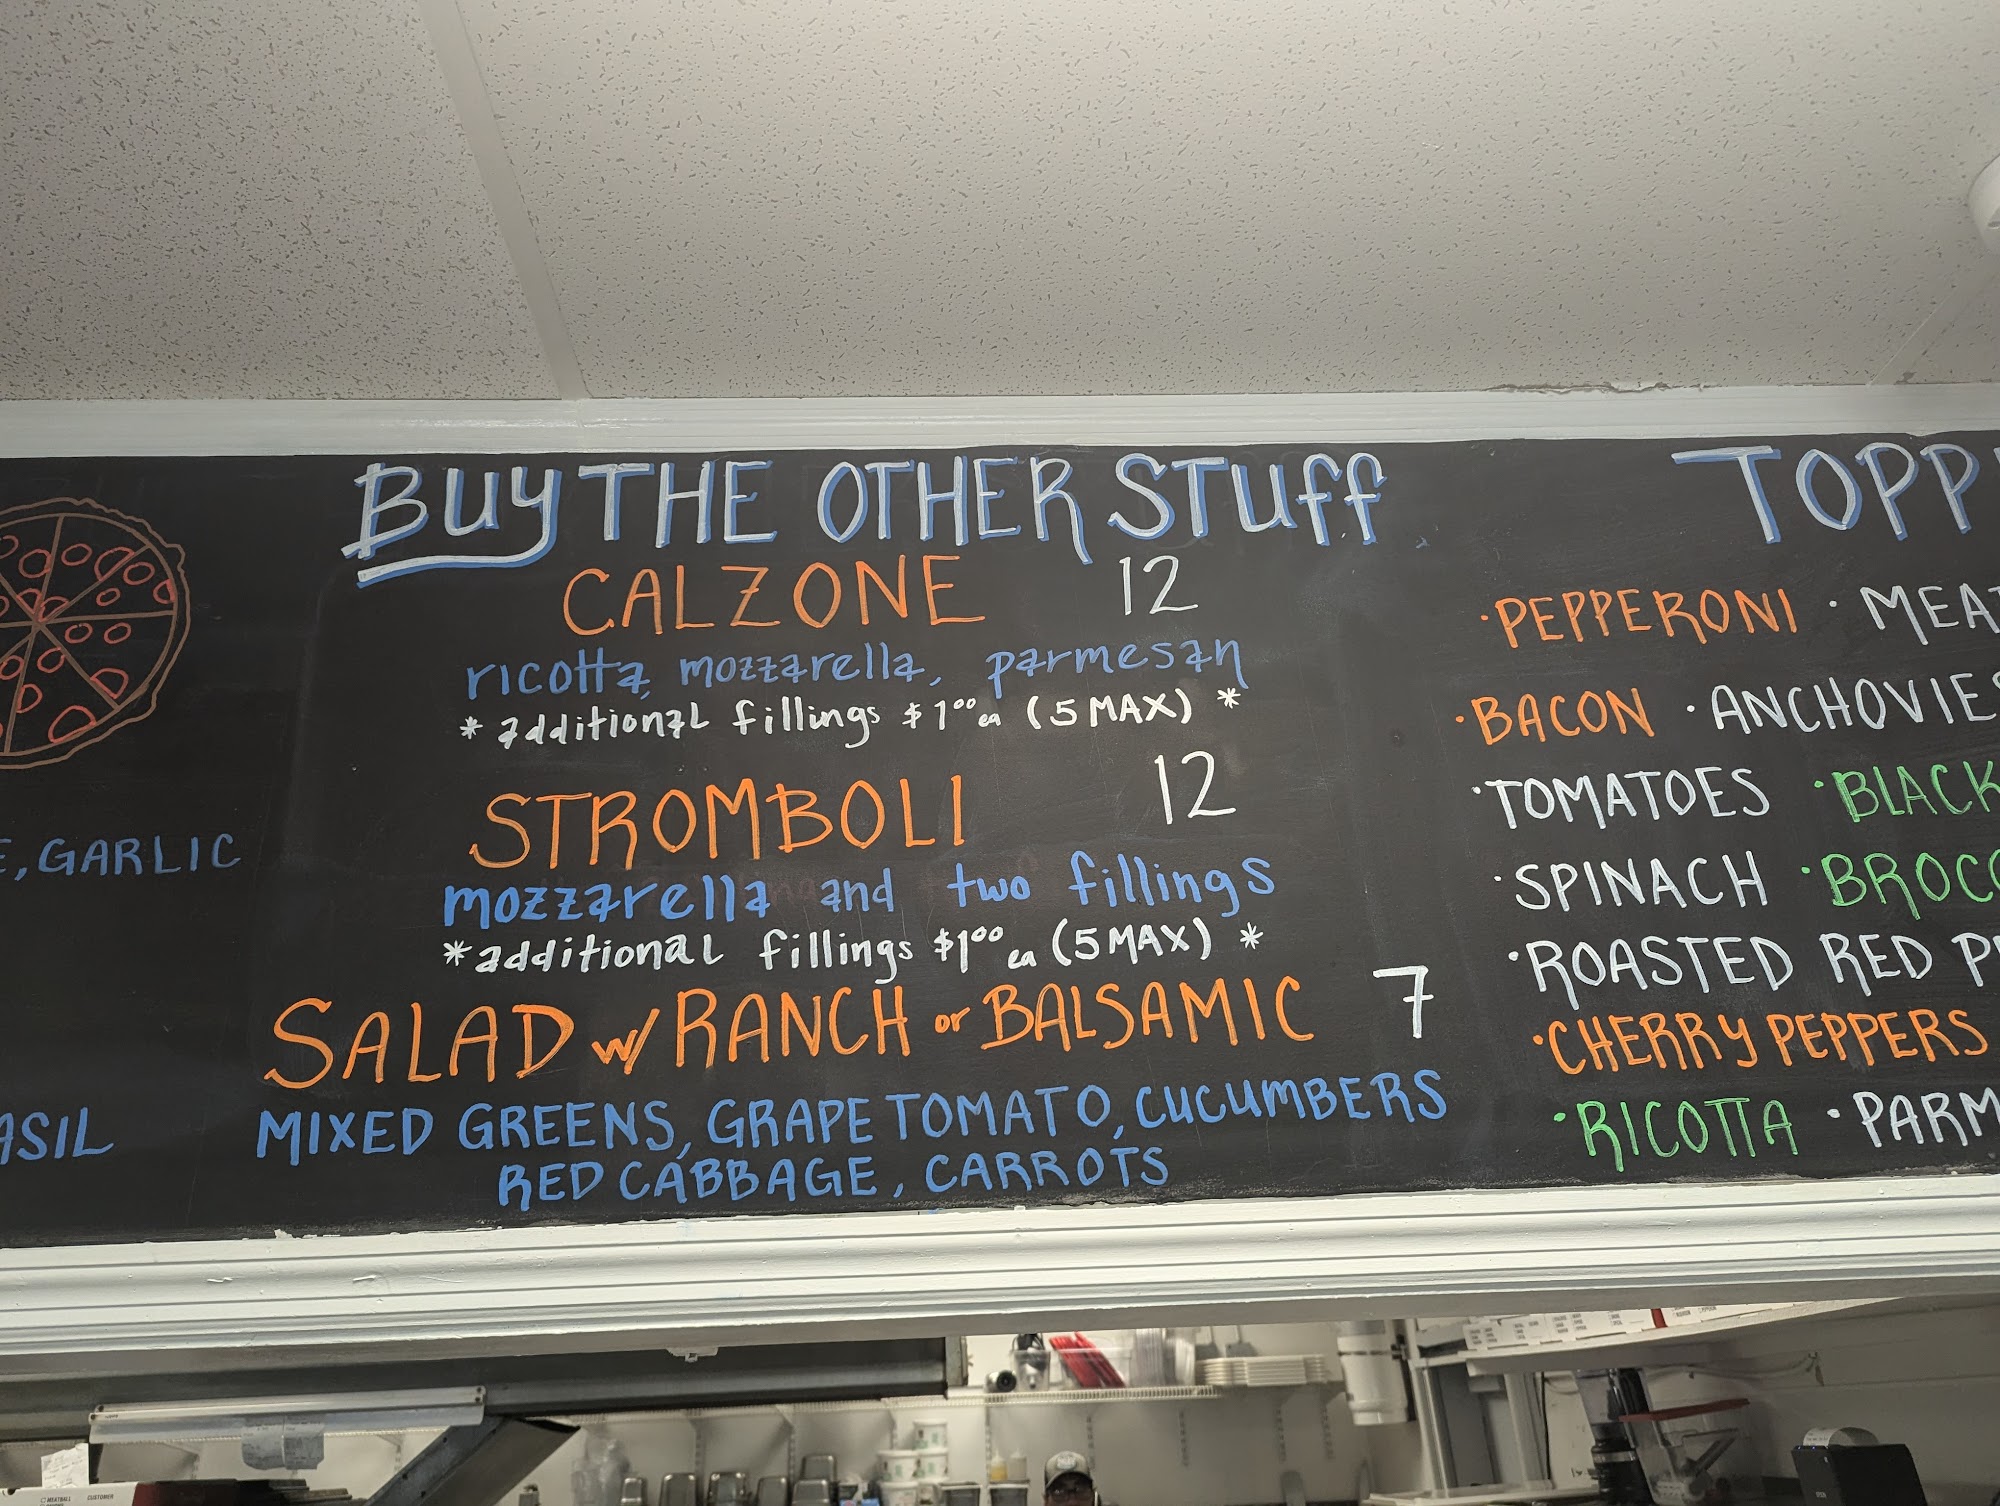 BUY THE OTHER STUFF
CALZONE 12
ricotta, mozzarella, parmesan
* additional fillings $1⁰⁰ ea (5 MAX) *
STROMBOLI 12
mozzarella and two fillings
*additional fillings $1⁰⁰ ea (5 MAX) *
SALAD w/ RANCH or BALSAMIC 7
MIXED GREENS, GRAPE TOMATO, CUCUMBERS
RED CABBAGE, CARROTS
E, GARLIC
ASIL
TOPP
·PEPPERONI ·MEAT
·BACON ·ANCHOVIES
·TOMATOES ·BLACK
·SPINACH ·BROCC
·ROASTED RED P
·CHERRY PEPPERS
·RICOTTA ·PARM
MEATBALL CUSTOMER